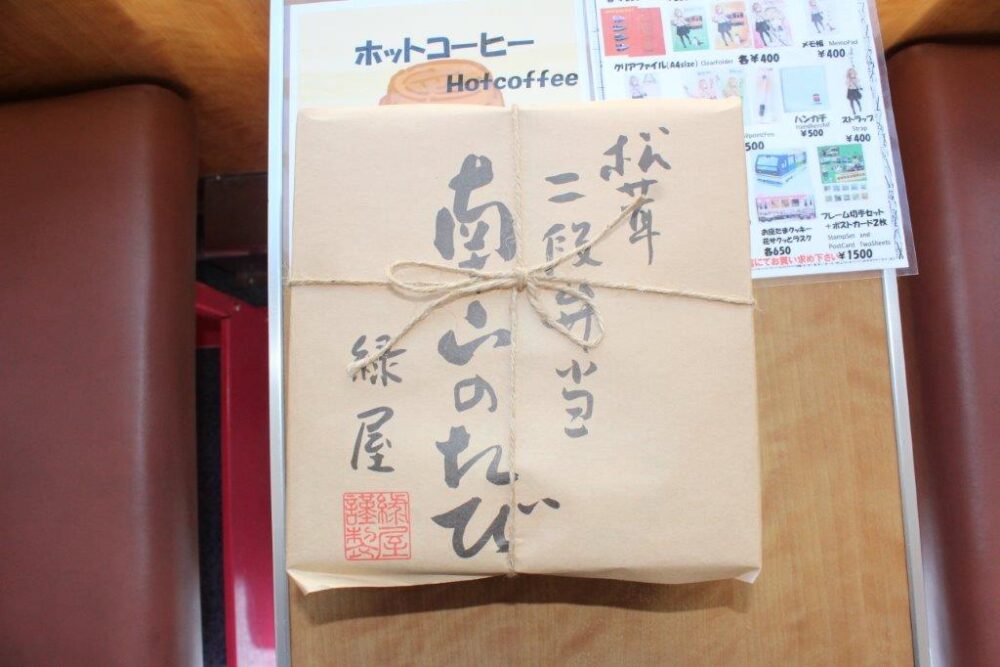 ホットコーヒー
Hotcoffee
クリアファイル(A4size) ClearFolder 各¥400
メモ帳 MemoPad
¥400
ハンカチ
¥500
ストラップ
Strap
¥400
500
お座たまクッキー
花サクッとラスク
各650
フレーム切手セット
+ポストカード2枚
StampSet and
PostCard TwoSheets
¥1500
にてお買い求め下さい
松茸
二段弁当
南山のたび
緑屋
緑屋
謹製